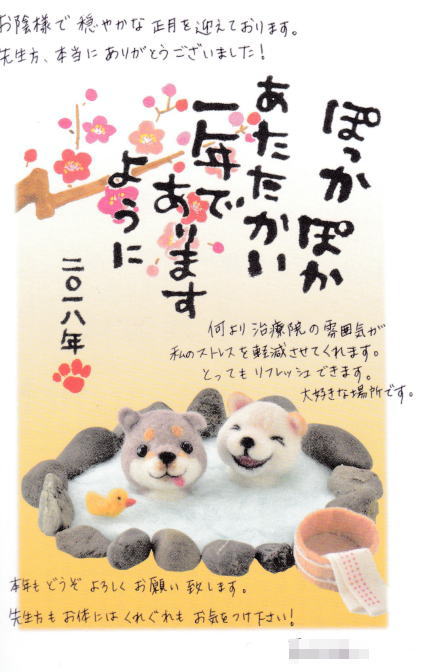 お陰様で穏やかな正月を迎えております。
先生方、本当にありがとうございました!
ぽっかぽか
あたたかい
一年で
あります
ように
二〇一八年
何より治療院の雰囲気が
私のストレスを軽減させてくれます。
とってもリフレッシュできます。
大好きな場所です。
本年もどうぞよろしくお願い致します。
先生方もお体にはくれぐれもお気をつけ下さい!